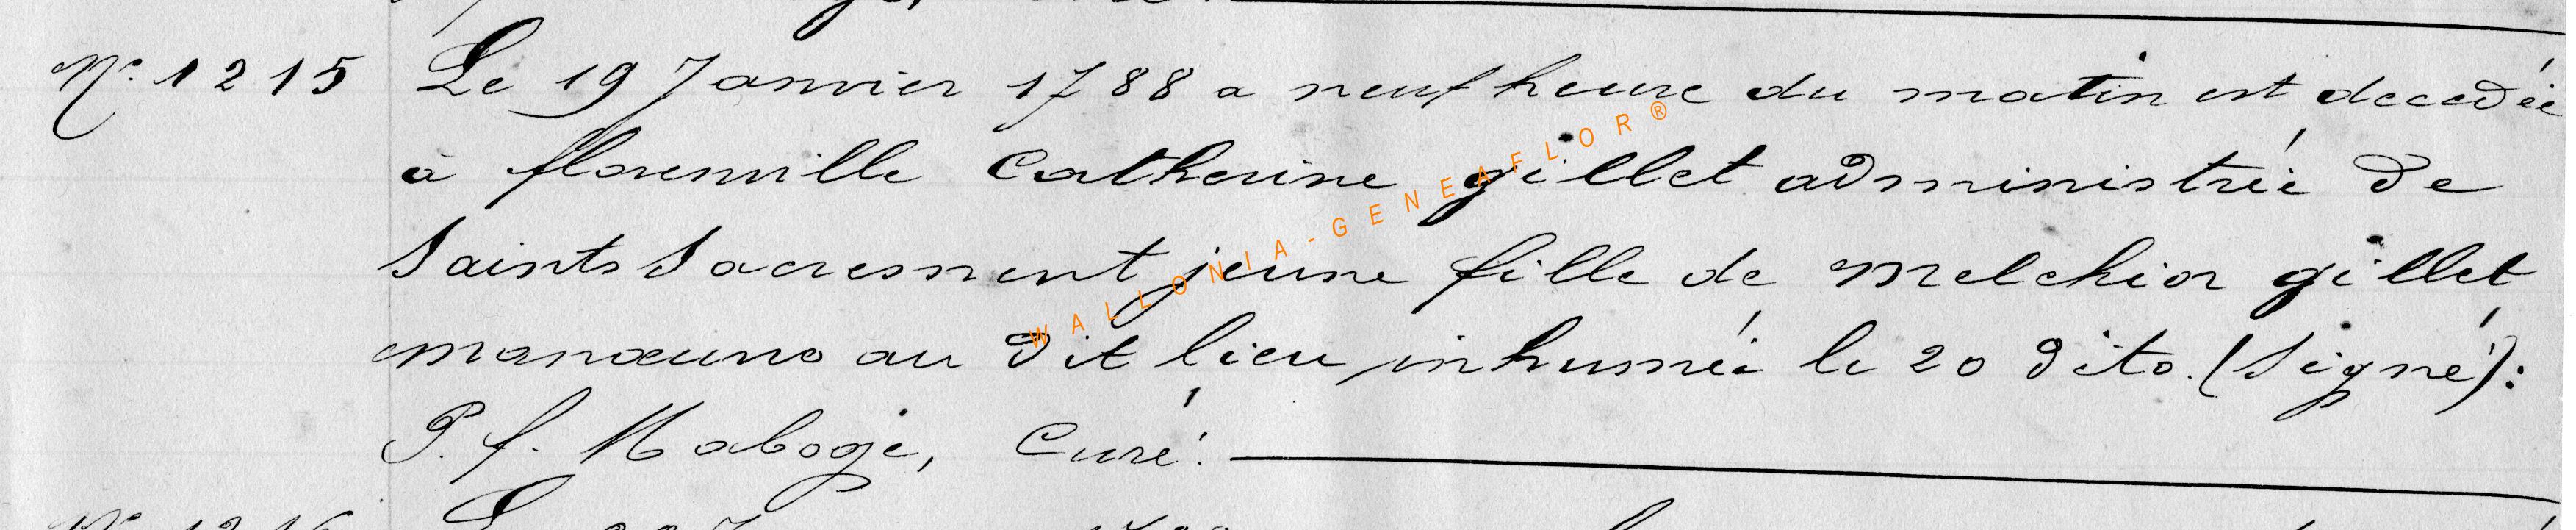 N° 1215 Le 19 Janvier 1788 a neuf heure du matin est decedée
à florenville Catherine gillet administrée de
Saints Sacrement jeune fille de Melchior gillet
manœuvre au dit lieu inhumée le 20 dito. (Signé):
P. f. Maboge, Curé.
WALLONIA-GENEAFLOR®